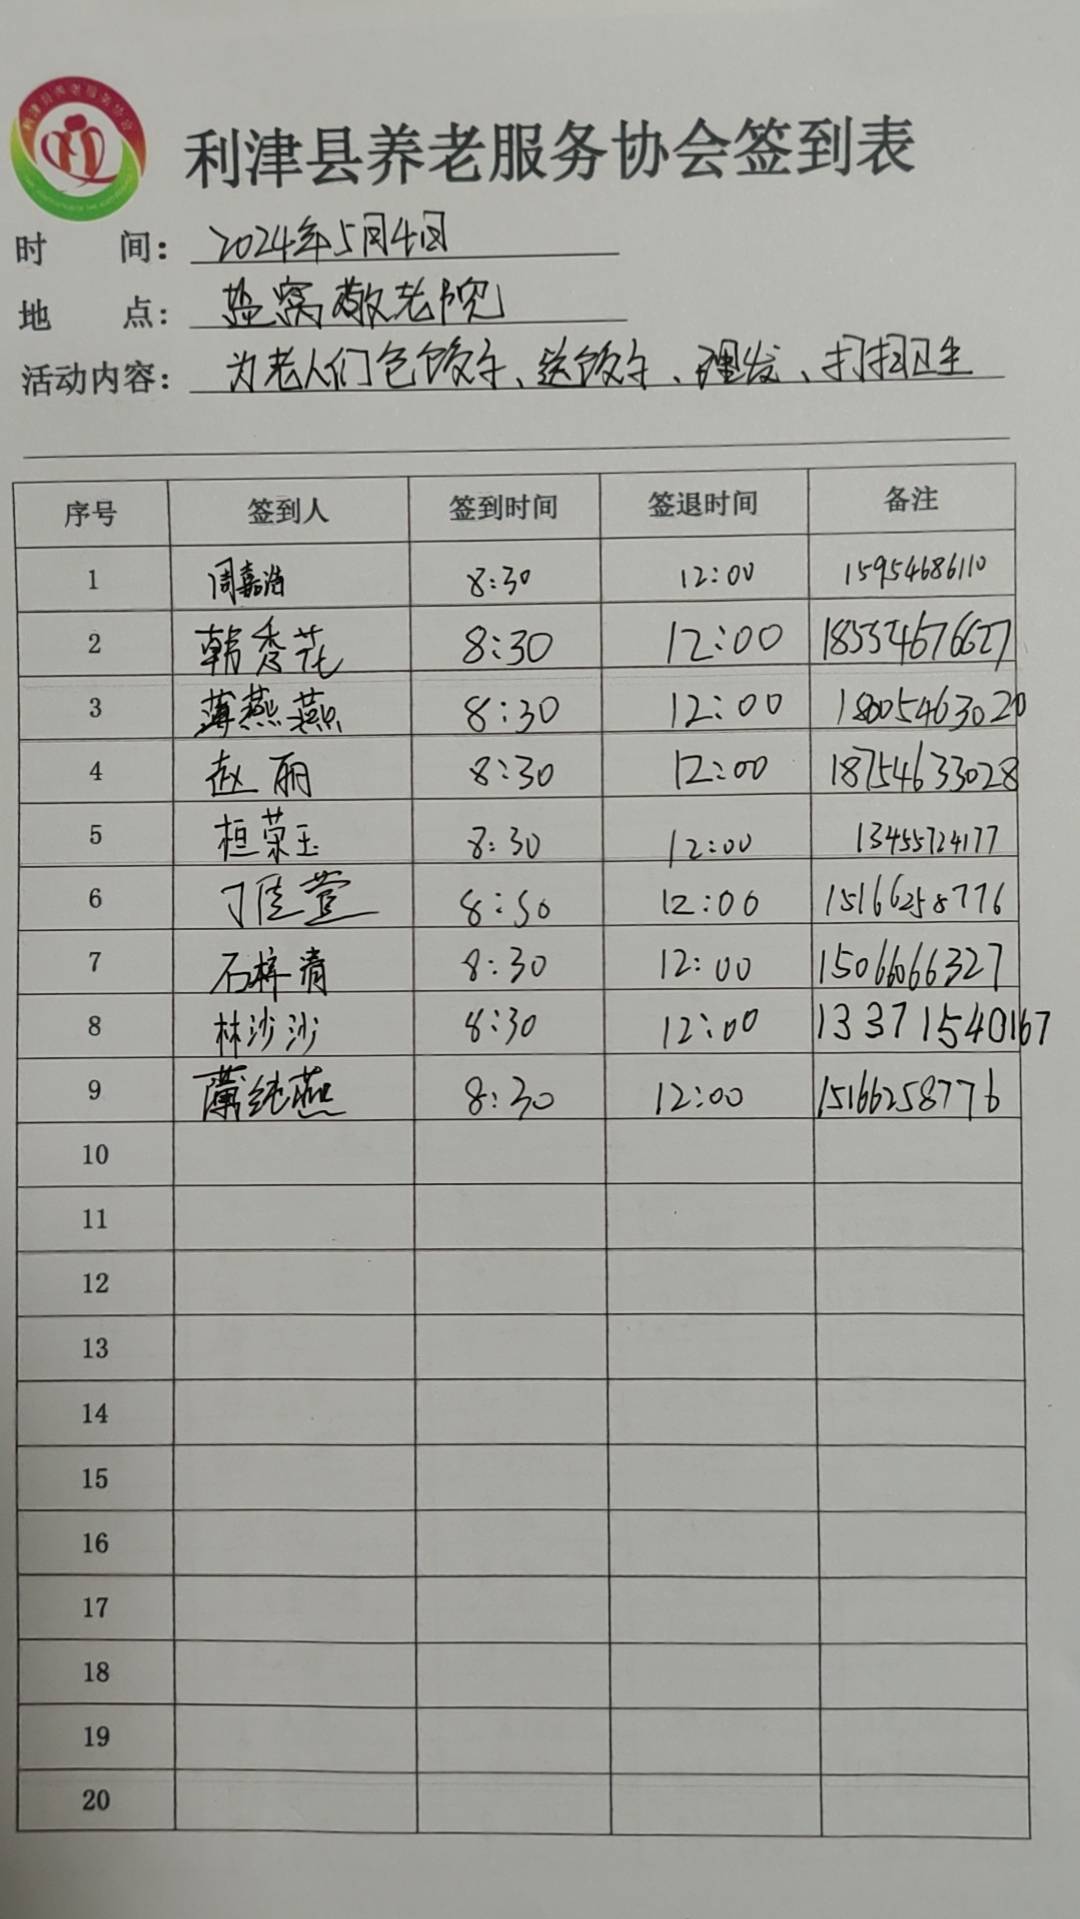 利津县养老服务协会签到表
时 间: 2024年5月4日
地 点: 盐窝敬老院
活动内容: 为老人们包饺子、送饺子、理发、打扫卫生
序号 签到人 签到时间 签退时间 备注
1 周嘉浩 8:30 12:00 15954686110
2 韩秀花 8:30 12:00 18554676627
3 薄燕燕 8:30 12:00 18005463020
4 赵丽 8:30 12:00 18754633028
5 桓荣玉 8:30 12:00 13455724177
6 丁佳萱 8:30 12:00 15166258776
7 石梓清 8:30 12:00 15066066327
8 林沙沙 8:30 12:00 13371540167
9 薄纯燕 8:30 12:00 15166258776
10
11
12
13
14
15
16
17
18
19
20